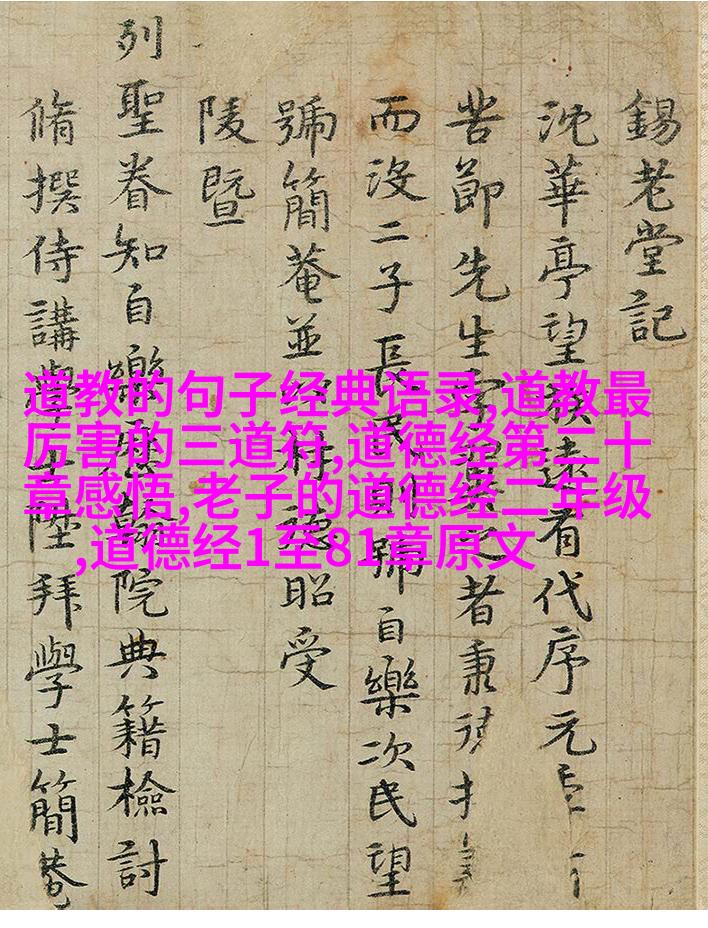 錫老堂記
沈華亭望族遠有代序元
苦節先生之者秉
而没二子長民則號自樂次民望
號簡菴並以特聰昭受
陵暨
列聖眷知自樂應翰院典籍檢討
脩撰侍講學士陞拜學士簡菴
道教的句子经典语录,道教最
厉害的三道符,道德经第二十
章感悟,老子的道德经二年级
,道德经1至81章原文